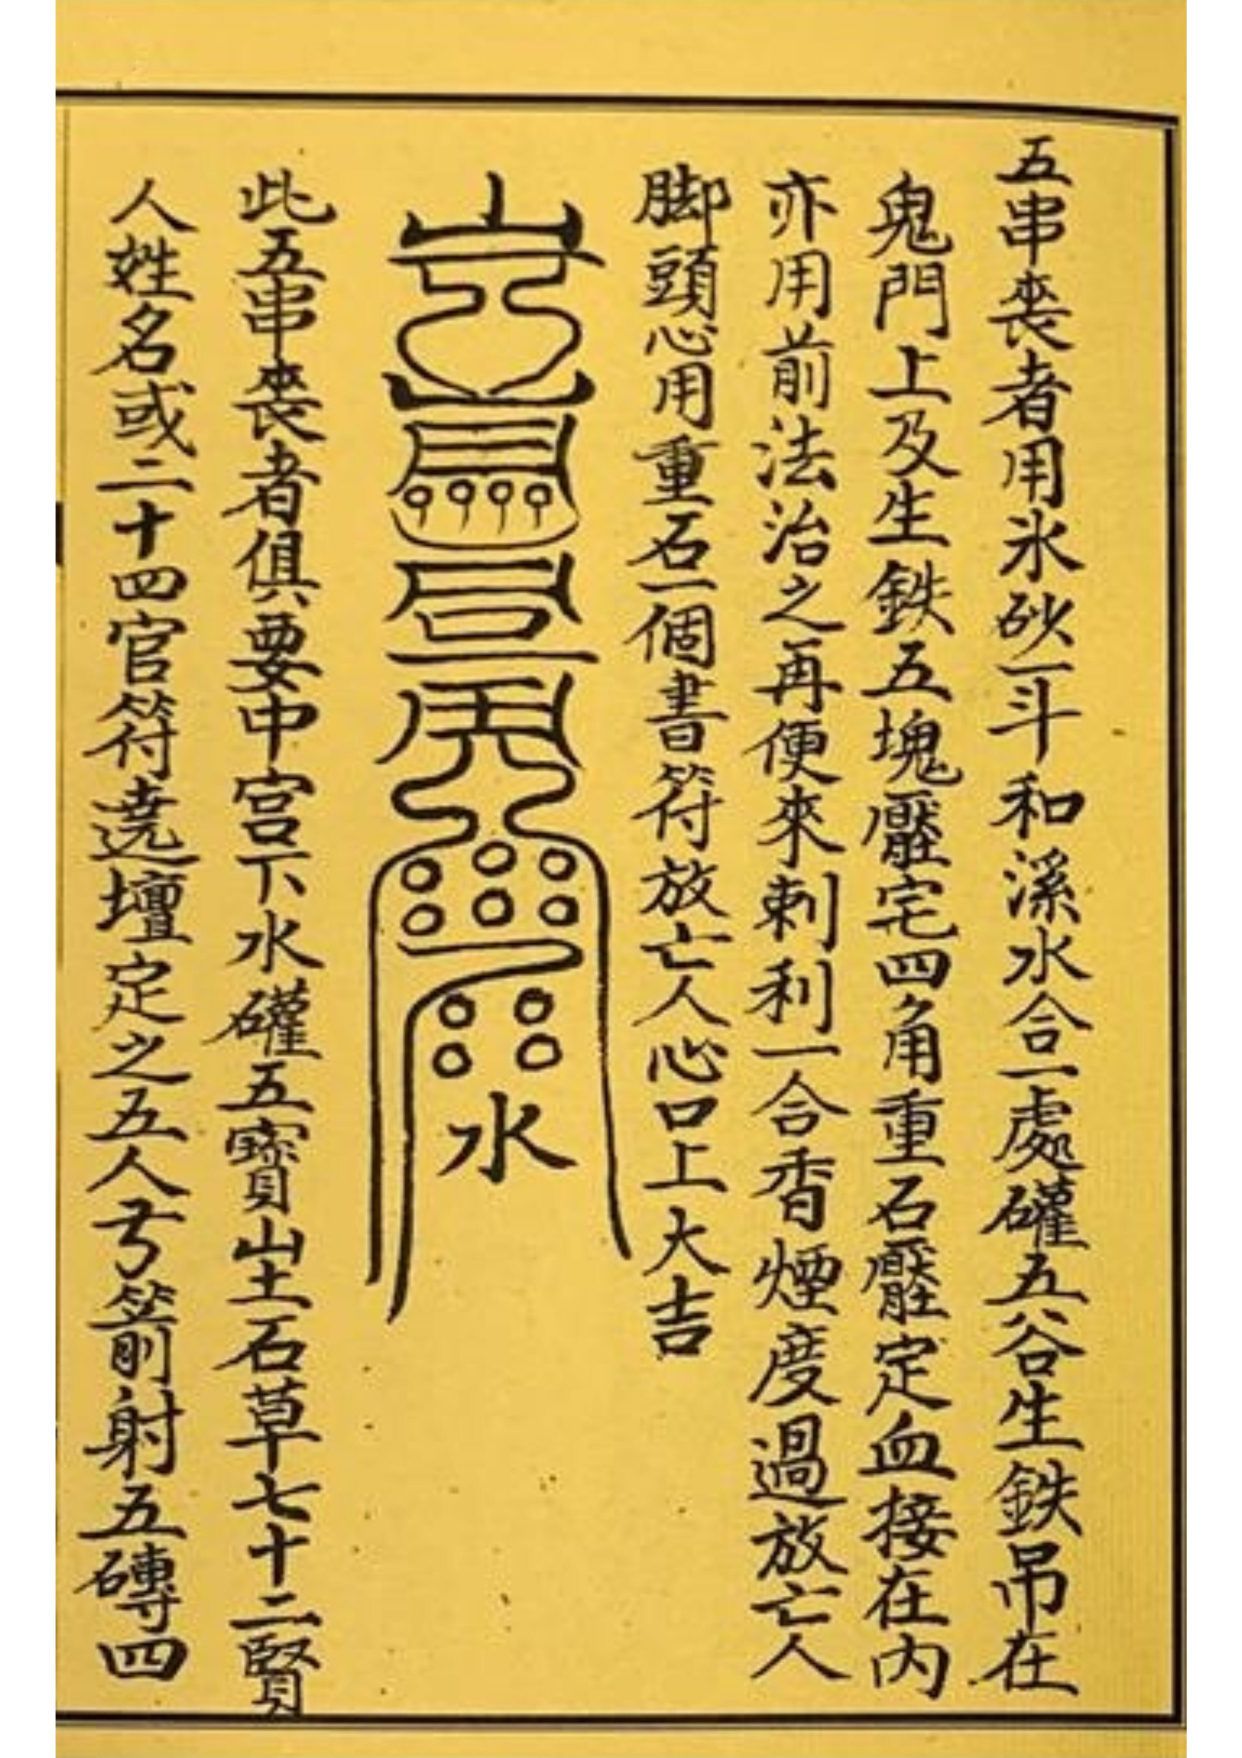 五串喪者用氷砂一斗和溪水合一處礶五谷生鉄吊在
鬼門上及生鉄五塊壓宅四角重石壓定血接在内
亦用前法治之再便來刺利一合香煙度過放亡人
脚頭心用重石一個書符放亡人心口上大吉
水
此五串喪者俱要中宮下水礶五寳山土石草七十二賢
人姓名或二十四官符遶壇定之五人弓箭射五磚四